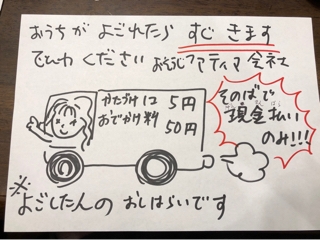 おうちが よごれたら すぐ きます
でんわ ください おそうじファティマ会社
かたづけに 5円
おでかけ料 50円
そのばで
現金払い
のみ!!!
※よごしたんの おしはらいです